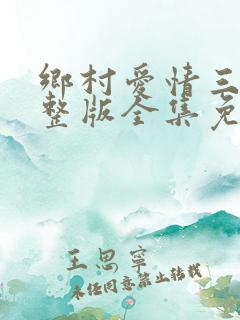 鄉村愛情三
整版全集免
王思寧
未經同意禁止轉載